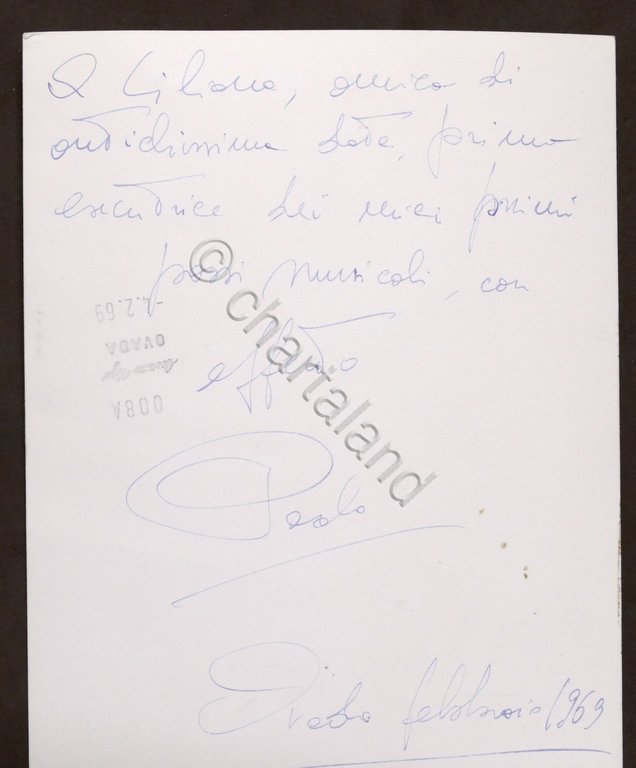 A Liliana, amica di
antichissima data, prima
esecutrice dei miei primi
passi musicali, con
affetto
Paolo
febbraio 1969
-4.2.69
OVADA
© chartaland